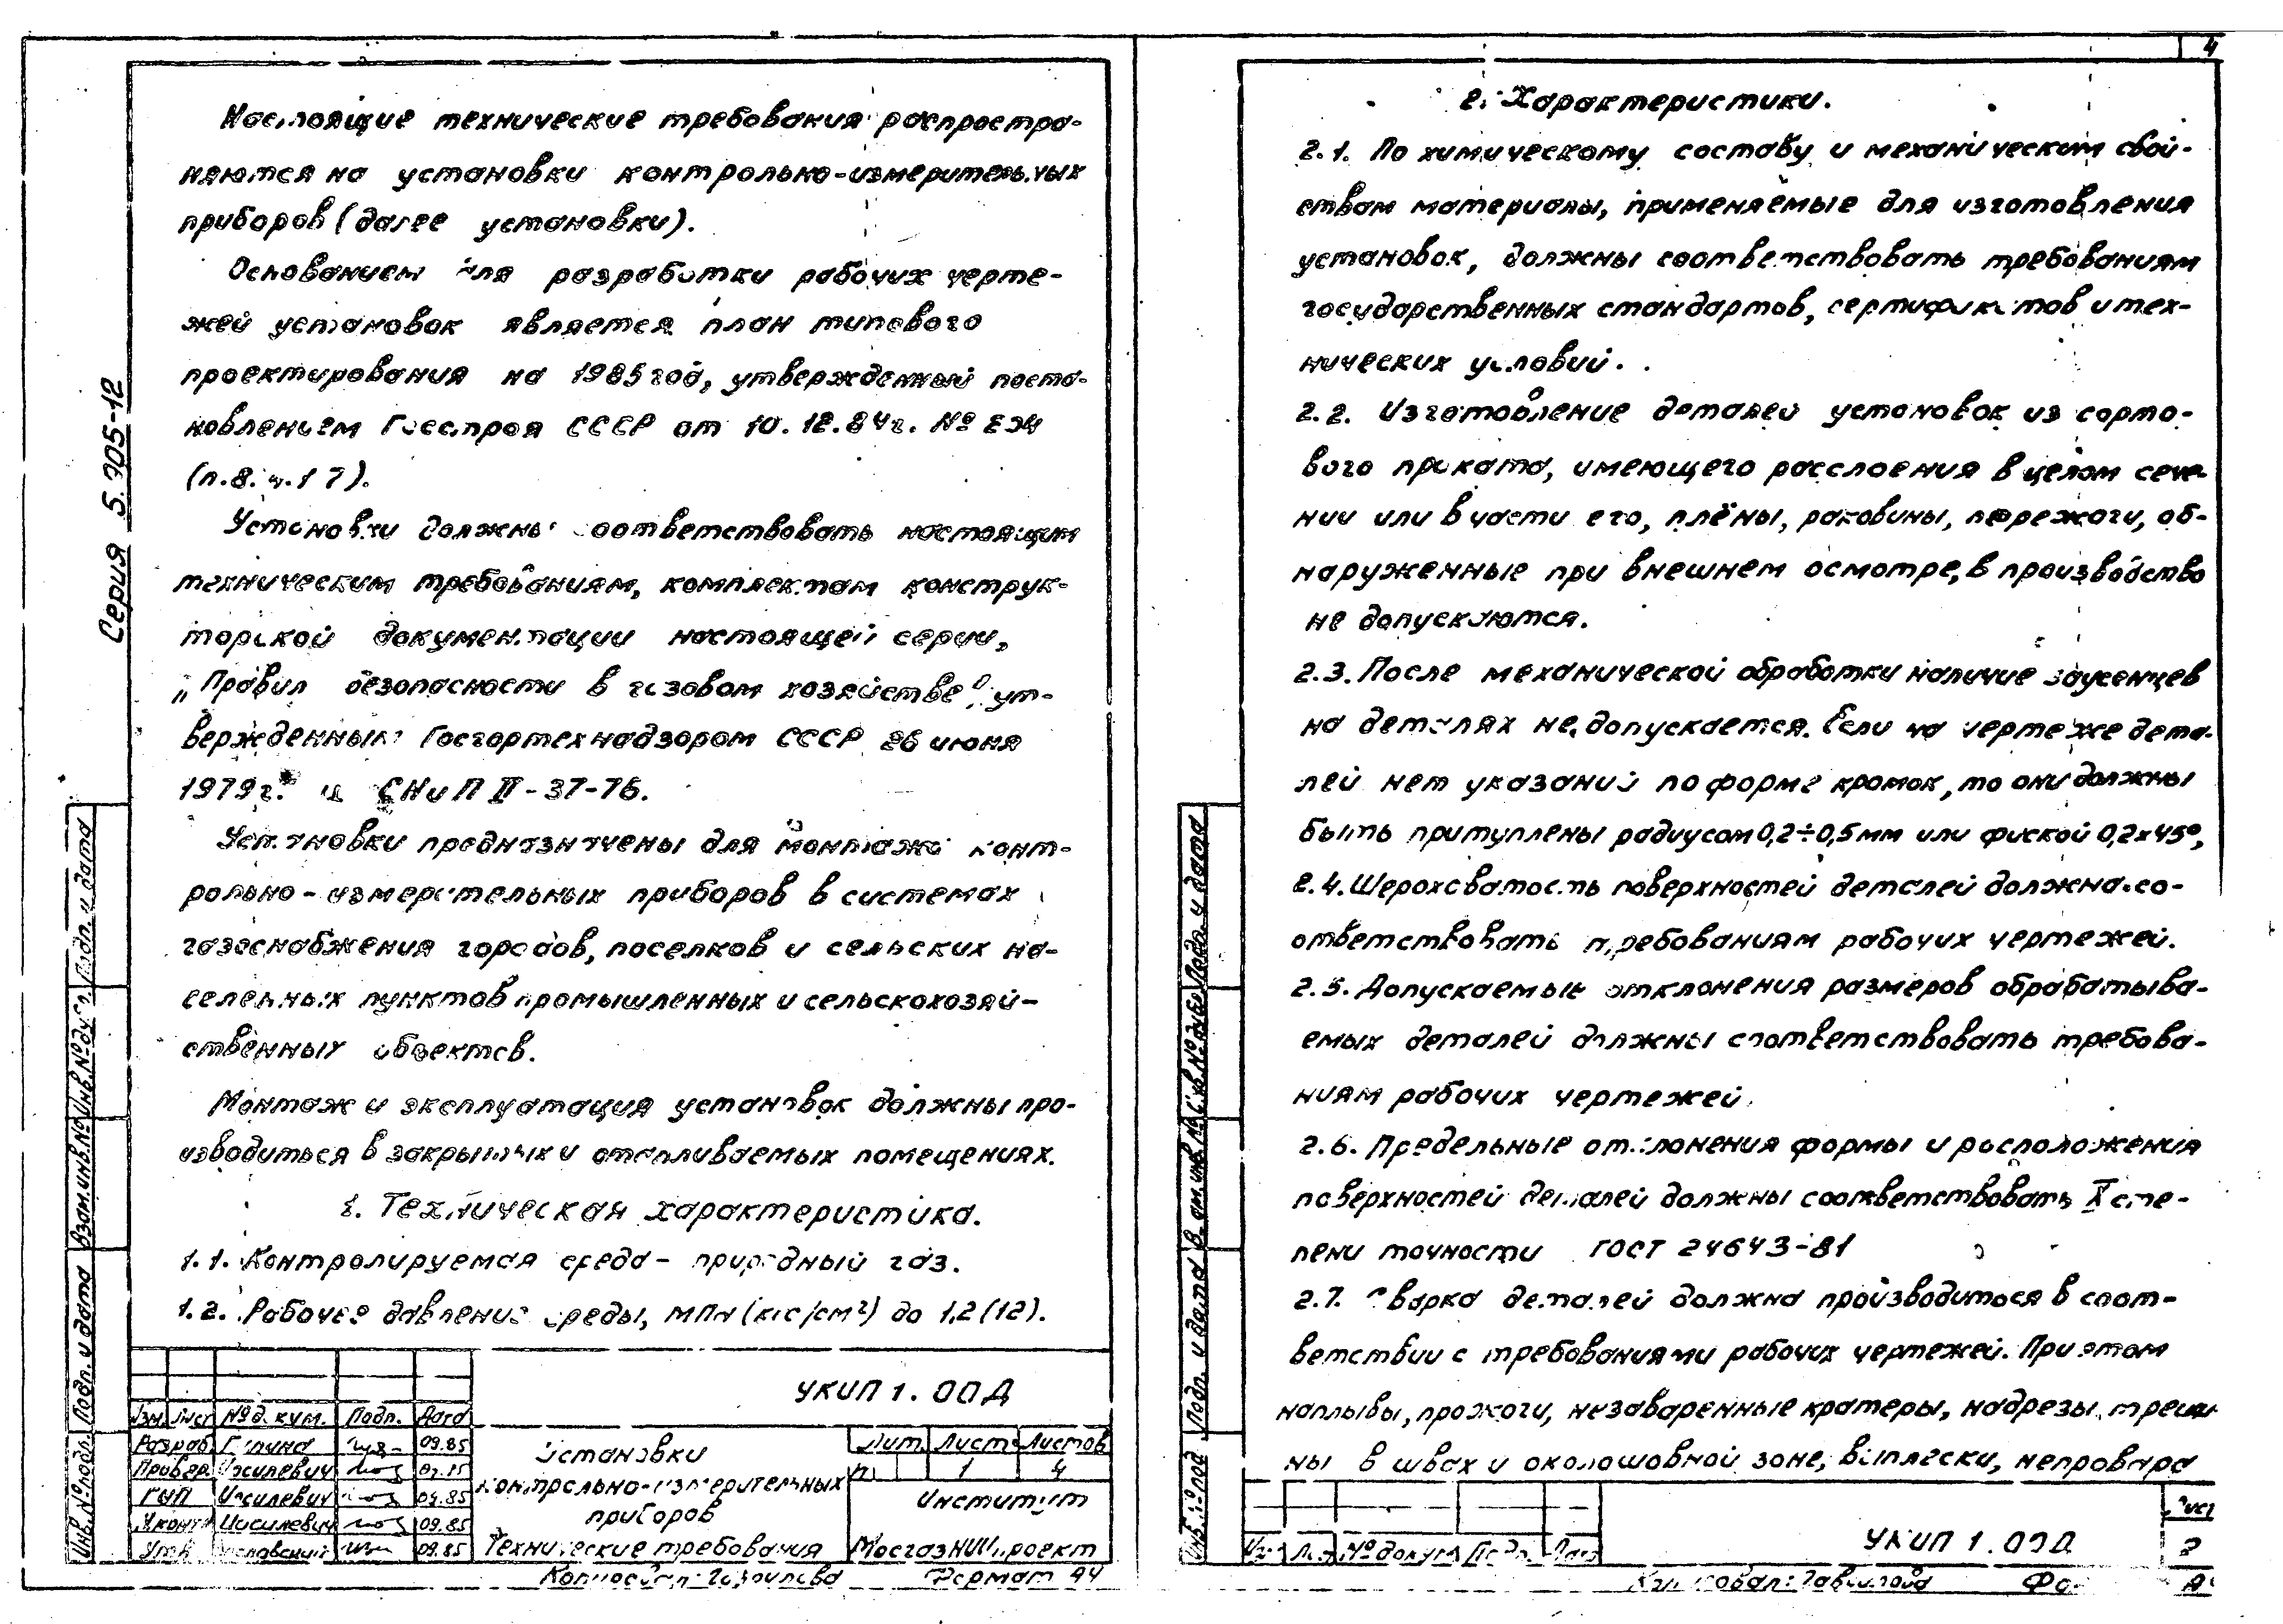 4
Серия 5.905-12
Настоящие технические требования распростра-
няются на установки контрольно-измерительных
приборов (далее установки).
Основанием для разработки рабочих черте-
жей установок является план типового
проектирования на 1985 год, утвержденный поста-
новлением Госстроя СССР от 10.12.84г. №
(п.8.
Установки должны соответствовать настоящим
техническим требованиям, комплектам конструк-
торской документации настоящей серии,
„Правил безопасности в газовом хозяйстве", ут-
вержденных Госгортехнадзором СССР 26 июня
1979г. и СНиП II-37-76.
Установки предназначены для монтажа конт-
рольно-измерительных приборов в системах
газоснабжения городов, поселков и сельских на-
селенных пунктов промышленных и сельскохозяй-
ственных объектов.
Монтаж и эксплуатация установок должны про-
изводиться в закрытых и отапливаемых помещениях.
1. Техническая характеристика.
1.1. Контролируемая среда – природный газ.
1.2. Рабочее давление среды, МПа (кгс/см²) до 1,2 (12).
УКИП 1.00Д
Изм. Лист № докум. Подп. Дата
Разраб. 09.85
Провер. Иосилевич
ГИП Иосилевич 09.85
Н.контр Иосилевич 09.85
Утв. 09.85
Установки
контрольно-измерительных
приборов
Технические требования
Лит. Лист Листов
1 4
Институт
МосгазНИИпроект
Копировал: Формат А4
Инв.№ подл. Подп. и дата Взам.инв.№ Инв.№ дубл. Подп. и дата
2. Характеристики.
2.1. По химическому составу и механическим свой-
ствам материалы, применяемые для изготовления
установок, должны соответствовать требованиям
государственных стандартов, сертификатов и тех-
нических условий.
2.2. Изготовление деталей установок из сорто-
вого проката, имеющего расслоения в целом сече-
нии или в части его, плёны, раковины, пережоги, об-
наруженные при внешнем осмотре, в производство
не допускаются.
2.3. После механической обработки наличие заусенцев
на деталях не допускается. Если на чертеже дета-
лей нет указаний по форме кромок, то они должны
быть притуплены радиусом 0,2÷0,5 мм или фаской 0,2х45°,
2.4. Шероховатость поверхностей деталей должна со-
ответствовать требованиям рабочих чертежей.
2.5. Допускаемые отклонения размеров обрабатыва-
емых деталей должны соответствовать требова-
ниям рабочих чертежей.
2.6. Предельные отклонения формы и расположения
поверхностей деталей должны соответствовать X сте-
пени точности ГОСТ 24643-81
2.7. Сварка деталей должна производиться в соот-
ветствии с требованиями рабочих чертежей. При этом
наплывы, прожоги, незаваренные кратеры, надрезы, трещи-
ны в швах и околошовной зоне, всплески, непровара
УКИП 1.00Д
Лист
2
Изм. Лист № докум. Подп. Дата
Копировал:
Инв.№ подл Подп. и дата Взам.инв.№ Инв.№ дубл Подп. и дата